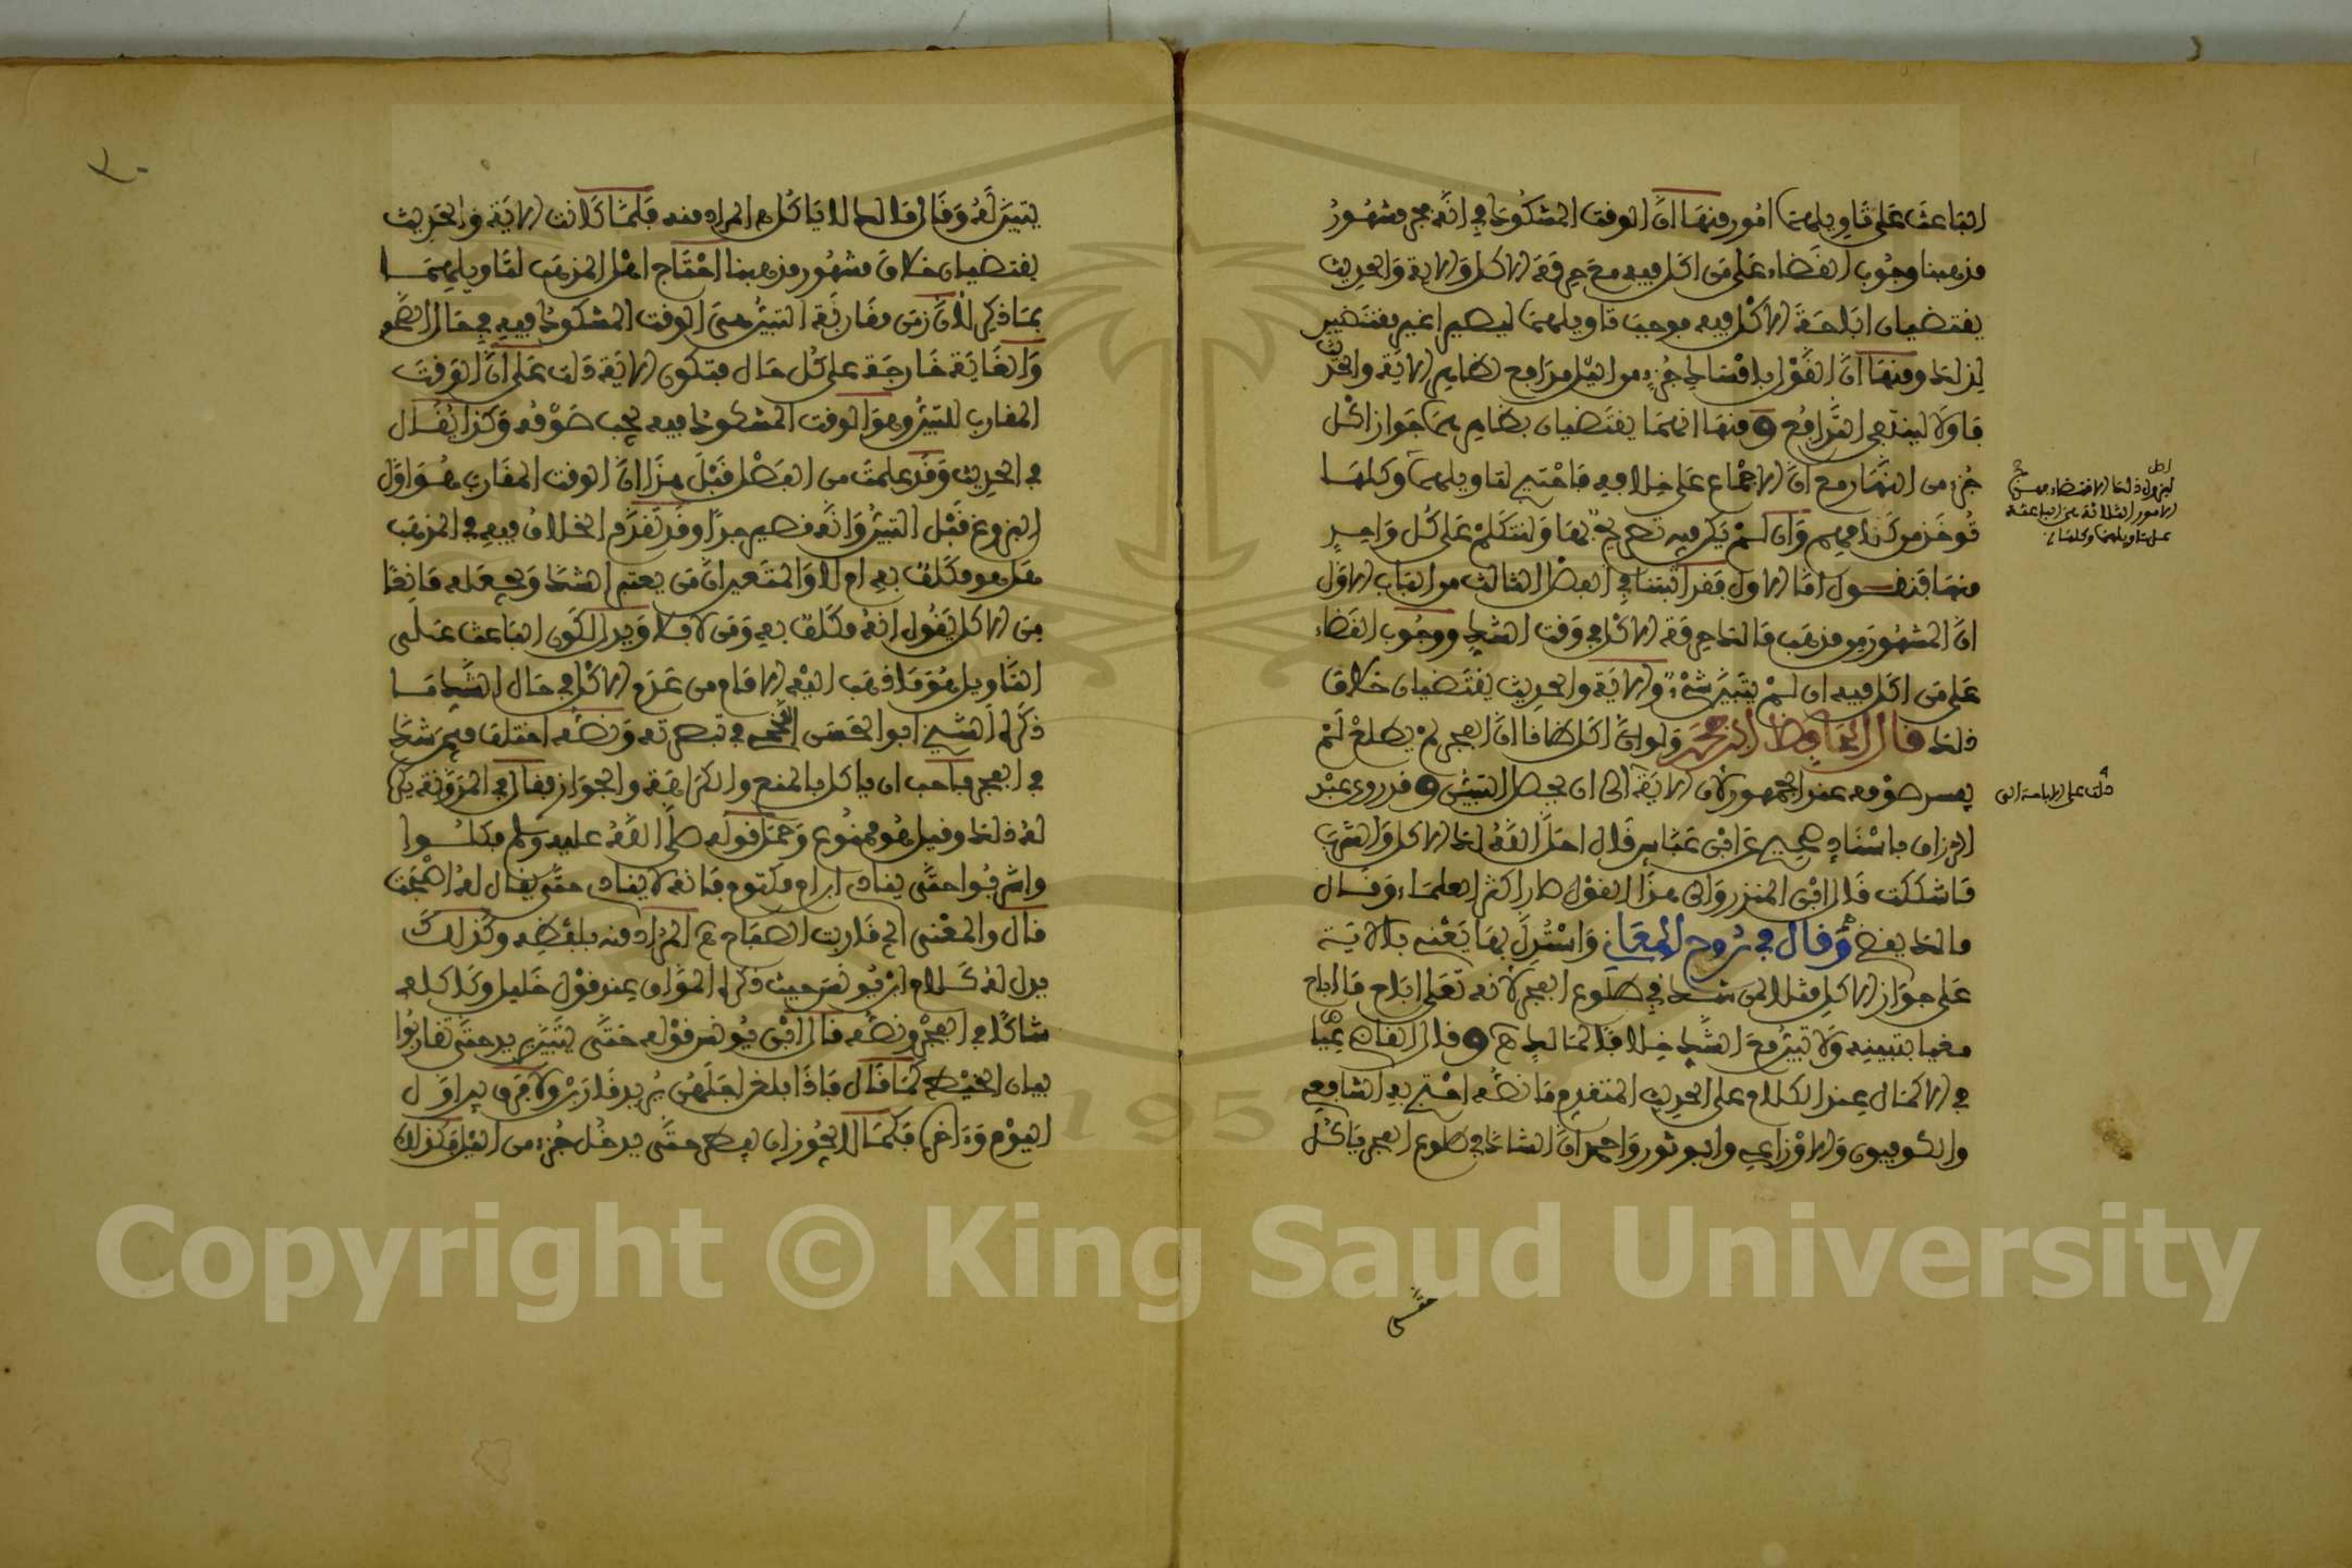 الباعث على تاويلهما امور منها ان الوقت المشكوك في انه فجر مشهور
مذهبنا وجوب القضاء على من اكل فيه مع حرمة الاكل والاية والحديث
يقتضيان اباحة الاكل فيه فوجب تاويلهما ليصيرا غير مقتضيين
لذلك ومنها ان القول بامساك جزء من الليل يدافع ظاهر الاية والحديث
فاولا ليندفع التدافع ومنها انهما يقتضيان بظاهرهما جواز اكل
جزء من النهار مع ان الاجماع على خلافه فاحتيج لتاويلهما وكلها
تؤخذ من كلامهم وان لم نر فيه تصريحا بها ولنتكلم على كل واحد
منها فنقول اما الاول فقد اثبتنا في الفصل الثالث من الباب الاول
ان المشهور من مذهب مالك حرمة الاكل في وقت الشك ووجوب القضاء
على من اكل فيه ان لم يتبين شيء والاية والحديث يقتضيان خلاف
ذلك قال الحافظ ابن حجر ولو ان اكل ظانا ان الفجر لم يطلع لم
يفسد صومه عند الجمهور لان الاية الى ان يحصل التبين وقد روى عبد
الرزاق باسناد صحيح عن ابن عباس قال احل الله لك الاكل والشرب
ما شككت قال ابن المنذر والى هذا القول صار اكثر العلماء وقال
مالك يقضي وقال في روح المعاني واستدل بها يعنى بالاية
على جواز الاكل مثلا لمن شك في طلوع الفجر لانه تعلى اباح ما اباح
مغيا بتبينه ولا تبين مع الشك خلافا لمالك وقال القاضي عياض
في الاكمال عند الكلام على الحديث المتقدم ما نصه احتج به الشافعي
والكوفيون والاوزاعي وابو ثور واحمد ان الشاك في طلوع الفجر ياكل
ليزول ذلك الاقتضاء فهذه
الامور الثلاثة هي الباعثة
على تاويلهما وكلها
دلت على الاباحة الى
٣٠
يتبين له وقال مالك لا ياكل المراد منه فلما كانت الاية والحديث
يقتضيان خلاف مشهور مذهبنا احتاج اهل المذهب لتاويلهما
بما ذكر لان زمن مقاربة التبين هي الوقت المشكوك فيه في حال الصحو
والغاية خارجة على كل حال فتكون الاية دلت على ان الوقت
المقارب للتبين وهو الوقت المشكوك فيه يجب صومه وكذا يقال
في الحديث وقد علمت من الفصل قبل هذا ان الوقت المقارب هو اول
البزوغ قبل التبين وانه قصير جدا وقد تقدم الخلاف فيه في المذهب
هل هو مكلف به ام لا والمتعين ان من يعتبر الشك ويجعله مانعا
من الاكل يقول انه مكلف به ومن لا فلا ويدل لكون الباعث على
التاويل هو ما ذهب اليه الامام من عدم الاكل في حال الشك ما
ذكره الشيخ ابو الحسن اللخمي في تبصرته ونصه اختلف فيمن شك
في الفجر فاحب ان ياكل بالمنع والكراهة والجواز فقال في المدونة يكره
له ذلك وقيل هو ممنوع وحمل قوله صلى الله عليه وسلم فكلوا
واشربوا حتى ينادي ابن ام مكتوم فانه لا ينادي حتى يقال له اصبحت
قال والمعنى اي قاربت الصباح المراد منه بلفظه وكذلك
يدل له كلام ابن يونس حيث ذكره المواق عند قول خليل وكاكله
شاكا في الفجر ونصه قال ابن يونس قوله حتى يتبين يريد حتى تقاربوا
بيان الخيط كما قال فاذا بلغن اجلهن يريد قاربن ولا فرق بين اول
اليوم وءاخره فكما لا يجوز ان يفطر حتى يدخل جزء من الليل فكذلك